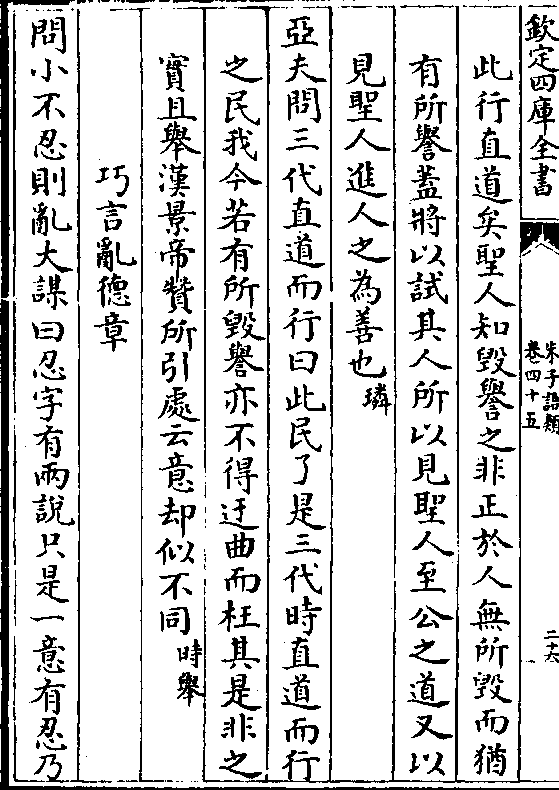 欽定四庫全書
朱子語類
卷四十五
二十六
此行直道矣聖人知毀譽之非正於人無所毀而猶
有所譽蓋將以試其人所以見聖人至公之道又以
見聖人進人之為善也璘
亞夫問三代直道而行曰此民了是三代時直道而行
之民我今若有所毀譽亦不得迂曲而枉其是非之
實且舉漢景帝贊所引處云意却似不同時舉
巧言亂德章
問小不忍則亂大謀曰忍字有兩說只是一意有忍乃